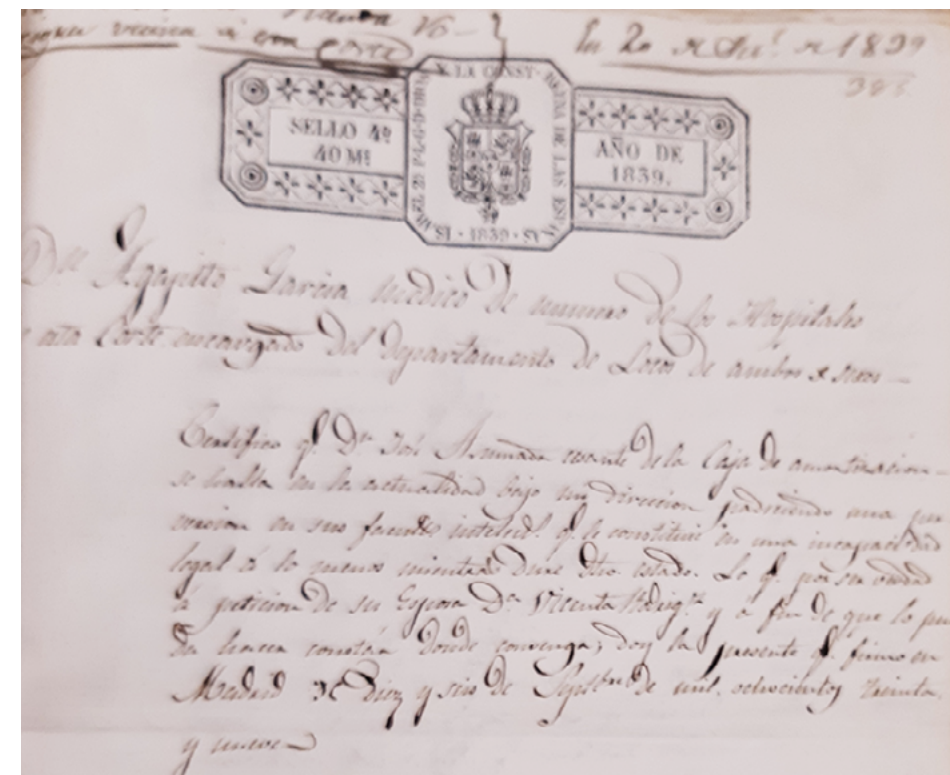 vecina á esta Corte
En 20 de 1839
SELLO 4º
40 Ms
ISABEL 2ª P. L. G. D. DIOS Y LA CONST. REYNA DE LAS ESPAÑAS · 1839 ·
AÑO DE
1839.
Dn Agapito Garcia medico de numero de los Hospitales
esta Corte encargado del Departamento de Locos de ambos sexos
Certifico q.e Dn José Ahumada cesante de la Caja de amortizacion
se halla en la actualidad bajo mi direccion padeciendo una
en sus intelect. q. le constituie en una incapacidad
legal á lo menos mientras dure dho estado. Lo q. por ser verdad
á peticion de su Esposa Da Vicenta Rodrigz y a fin de que lo pue
da hacer constar donde convenga, doy la presente q. firmo en
Madrid á Diez y seis de Septbre de mil ochocientos treinta
y nueve